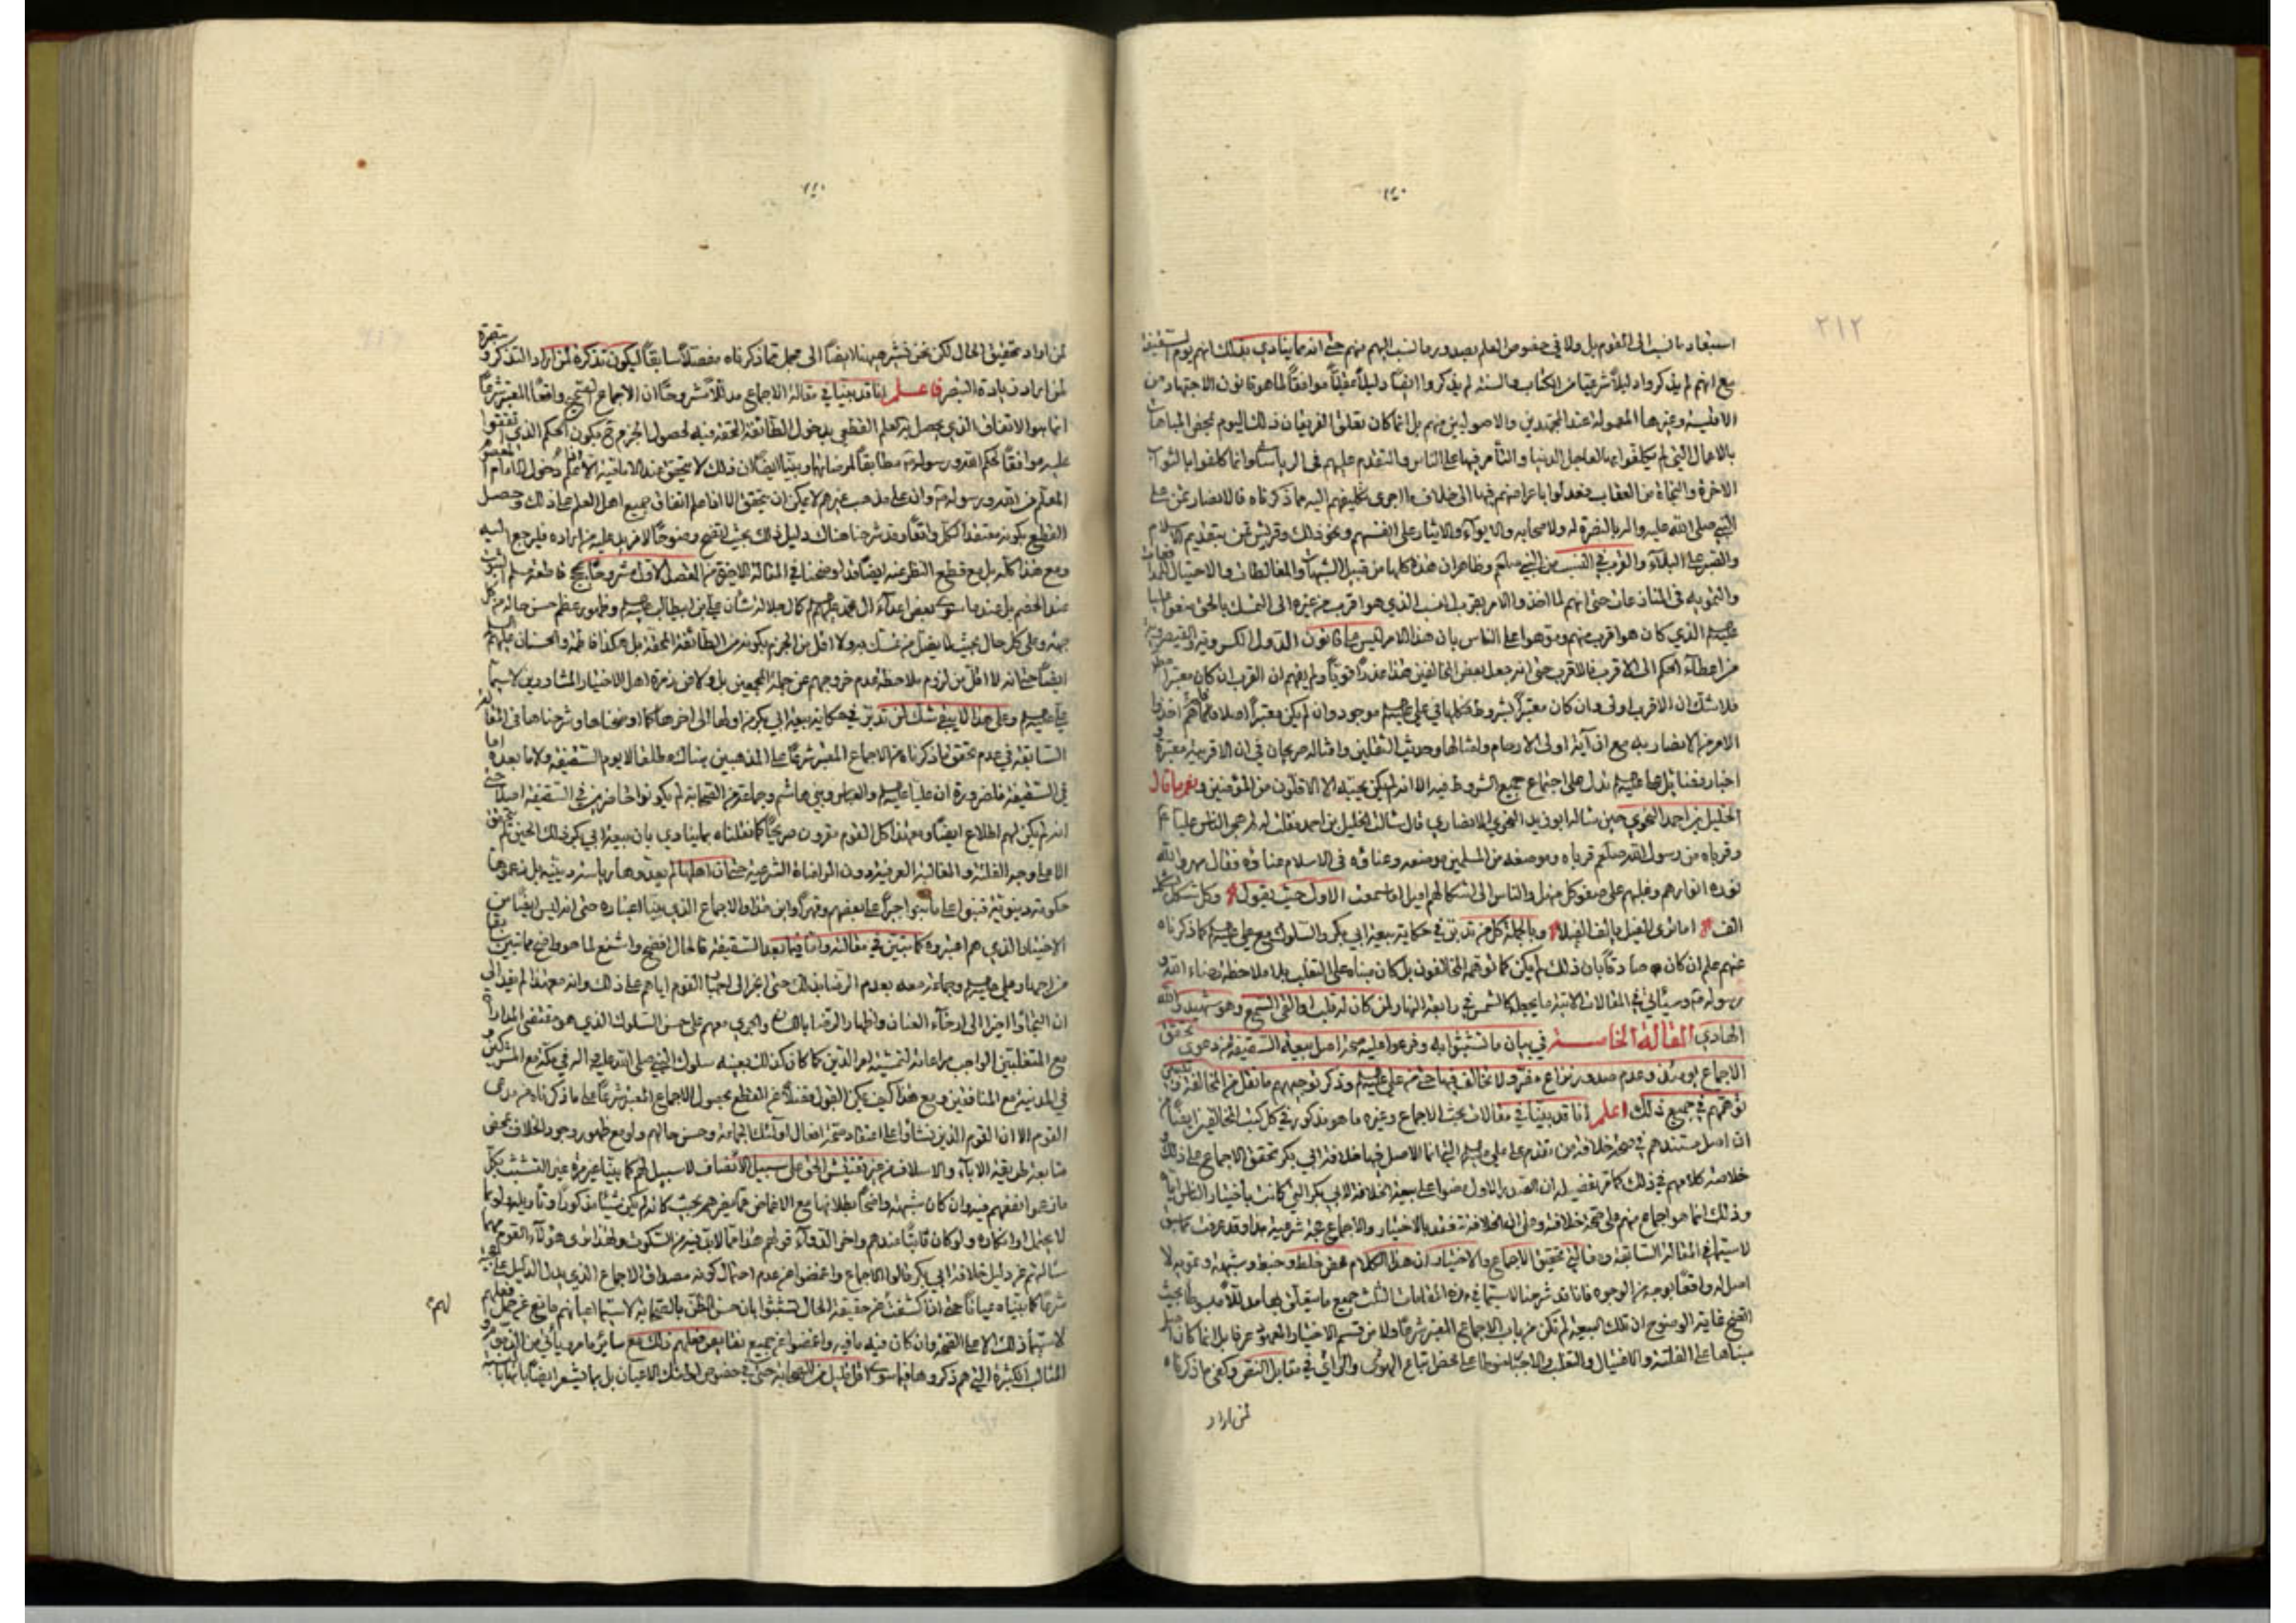 ٢١٢
استبعاد ما نسب الى القوم بل ولا فى خصوص العلم بصدور ما نسب اليهم منهم حتى انه مما ينادي بذلك انهم يوم السقيفة
مع انهم لم يذكروا دليلاً شرعيا من الكتاب والسنة لم يذكروا ايضاً دليلاً عقلياً موافقاً لما هو قانون الاجتهاد من
وغيرها المعمولة عند المجتهدين والاصوليين منهم بل انما كان تعلق الفريقان ذلك اليوم بمحض المباهات
بالاعمال التي لم يكلفوا بها لعاجل الدنيا والتأمر فيها على الناس والتقدم عليهم فى الرياسة وانما كلفوا بها لثواب
الآخرة والنجاة من العقاب فعدلوا باعراضهم فيها الى خلاف ما اجرى تكليفهم اليه مما ذكرناه فالانصار تمن على
النبي صلى الله عليه واله بالنصرة له ولاصحابه والايواء والايثار على انفسهم ونحو ذلك وقريش تمن بتقديم الاسلام
والصبر على البلاء والقرب في النسب من النبي صلعم وظاهر ان هذه كلها من قبيل الشبهات والمغالطات والاحتيال
والتمويه فى المنازعات حتى انهم لما اخذوا الامر بقرب النسب الذي هو اقرب من غيره الى التمسك بالحق منعوا عليا
عليه السلام الذي كان هو اقرب منهم وموهوا على الناس بان هذا الامر ليس على قانون الدول الكسروية والقيصرية
من اعطاء الحكم الى الاقرب فالاقرب حتى انه جعل بعض المخالفين هذا عذراً قوياً ولم يفهم ان القرب ان كان معتبراً
فلا شك ان الاقرب اولى وان كان معتبراً بشروط فكلها في علي عليه السلام موجود وان لم يكن معتبراً اصلا
الامر من الانصار به مع ان آية اولى الارحام وامثالها وحديث الثقلين وامثاله صريحان في ان الاقربية معتبرة
اخبار فضائل علي عليه السلام تدل على اجتماع جميع الشروط فيه الا انه لم يكن يحبه الا الاقلون من المؤمنين ونعم ما قال
الخليل بن احمد النحوي حين سأله ابو زيد النحوي الانصاري قال سألت الخليل بن احمد فقلت له لم هجر الناس علياً ع
وقرباه من رسول الله صلعم قرباه وموضعه من المسلمين موضعه وعناؤه فى الاسلام عناؤه فقال بهر والله
نوره انوارهم وغلبهم على صفو كل منهل والناس الى اشكالهم اميل اما سمعت الاول حيث يقول وكل شكل لشكله
الف اما ترى الفيل يالف الفيلا وبالجملة كل من تدبر في حكاية بيعة ابي بكر والسلوك مع علي عليه السلام كما ذكرناه
عنهم علم ان كان صادقاً بان ذلك لم يكن كما توهمه المخالفون بل كان مبناه على التغلب بلا ملاحظة رضاء الله و
رسوله فيه وسيأتي في المقالات الآتية ما يجعله كالشمس في رابعة النهار لمن كان له قلب او القى السمع وهو شهيد والله
الهادي المقالة الخامسة في بيان ما تشبثوا به وفرعوا عليه صحة اصل بيعة السقيفة من دعوى تحقق
الاجماع يومئذ وعدم صدور نزاع مضر ولا تخالف فيها حتى من علي عليه السلام وذكر توجيههم ما نقل من المخالفة وتبيين
توهمهم في جميع ذلك اعلم انا قد بينا في مقالات بحث الاجماع وغيره ما هو مذكور في كل كتب المخالفين ايضاً من
ان اصل مستندهم في صحة خلافة من تقدم على علي عليه السلام التي انما الاصل فيها خلافة ابي بكر تحقق الاجماع على ذلك و
خلاصة كلامهم في ذلك كما مر تفصيله ان الصدر الاول رضوا على بيعة الخلافة لابي بكر التي كانت باختيار الناس اياه
وذلك انما هو اجماع منهم على صحة خلافته وعلى ان الخلافة تنعقد بالاختيار والاجماع حجة شرعية هذا وقد عرفت مما سبق
لا سيما في المقالة السابقة ومقالتي تحقيق الاجماع والاختيار ان هذا الكلام محض خلط وخبط وشبهة وتمويه لا
اصل له واقعاً بوجه من الوجوه فانا قد شرحنا لا سيما في هذه المقامات الثلث جميع ما يتعلق بها مدللاً مبسوطاً بحيث
اتضح غاية الوضوح ان تلك البيعة لم تكن من باب الاجماع المعتبر شرعاً ولا من قسم الاختيار المعهود عرفا بل انما كان اصل
مبناها على الفلتة والاغتيال والتغلب والاجبار على محض اتباع الهوى والرأي في مقابل النص وكفى ما ذكرناه
لمن اراد
لمن اراد تحقيق الحال لكن نحن نشير هيهنا ايضاً الى مجمل مما ذكرناه مفصلاً سابقاً ليكون تذكرة لمن اراد التذكر وتبصرة
لمن اراد زيادة التبصر فاعلم انا قد بينا في مقالة الاجماع مدللاً مشروحاً ان الاجماع الصحيح واقعاً المعتبر شرعاً
انما هو الاتفاق الذي يحصل به العلم القطعي بدخول الطائفة المحقة فيه لحصول الجزم ح بكون الحكم الذي اتفقوا
عليه موافقاً لحكم الله ورسوله مطابقاً لمرضاتهما وبينا ايضاً ان ذلك لا يتحقق عند الامامية الا دخول الامام المعصوم
المعلم من الله ورسوله فيه وان على مذهب غيرهم لا يمكن ان يتحقق الا اذا علم اتفاق جميع اهل العلم على ذلك وحصل
القطع بكونه معتقد الكل واقعاً وقد شرحنا هناك دليل ذلك بحيث اتضح وضوحاً لا مزيد عليه من اراده فليرجع اليه
ومع هذا كله بل مع قطع النظر عنه ايضاً قد اوضحنا في المقالة الاخيرة من الفصل الاول مشروحاً بحجج قاطعة
عند الخصم بل عند ما سوى بعض اعداء ال محمد عليهم السلام كمال جلالة شأن علي بن ابيطالب عليه السلام وظهور عظم حسن حاله من كل
جهة وعلى كل حال بحيث لا اقل من الجزم بكونه من الطائفة المحقة بل هكذا فاطمة والحسنان عليهم السلام
ايضاً حتى انه لا اقل من لزوم ملاحظة عدم خروجهم عن جملة المجمعين بل ولا عن زمرة اهل الاختيار المشاورين لا سيما
علي عليه السلام وعلى هذا لا يبقى شك لمن تدبر في حكاية بيعة ابي بكر من اولها الى اخرها كما اوضحناها وشرحناها فى المقالة
السابقة في عدم تحقق ما ذكرناه من الاجماع المعتبر شرعاً على المذهبين هناك مطلقا لا يوم السقيفة ولا ما بعده اما
في السقيفة فلضرورة ان علياً عليه السلام والعباس وبني هاشم وجماعة من الصحابة لم يكونوا حاضرين في السقيفة اصلاً حتى
انه لم يكن لهم اطلاع ايضاً ومع هذا كل القوم مقرون صريحاً كما نقلناه بما ينادي بان بيعة ابي بكر ذلك الحين لم يتحقق
الا على وجه الفلتة والمغالبة العرفية دون المراضاة الشرعية حتى ان اهلها لم يعدوها رياسة دينية بل زعموها
حكومة دنيوية فبنوا على ما بنوا جبراً على بعضهم وقهراً واين هذا والاجماع الذي بينا اعتباره حتى انه ليس ايضاً من
الاختيار الذي هم اعتبروه كما تبين في مقالته واما فيما بعد السقيفة فالحال افضح واشنع لما هو واضح مما تبين سابقا
من اجهار علي عليه السلام وجماعة معه بعدم الرضا بذلك حتى انجر الى اجبار القوم اياهم على ذلك وانه مع هذا لم يفد الى
ان التجأوا اخيرا الى ارخاء العنان واظهار الرضا باللسان والجري معهم على حسن السلوك الذي هو مقتضى المداراة
مع المتغلبين الواجب مراعاته لتمشية امر الدين كما كان كذلك بعينه سلوك النبي صلى الله عليه واله في مكة مع المشركين و
في المدينة مع المنافقين ومع هذا كيف يمكن القول فضلاً عن القطع بحصول الاجماع المعتبر شرعاً على ما ذكرناه من مدعى
القوم الا ان القوم الذين نشأوا على اعتقاد صحة افعال اولئك الجماعة وحسن حالهم ولو مع ظهور وجود الخلاف بمحض
متابعة طريقة الاباء والاسلاف من غير تفتيش الحق على سبيل الانصاف لا سبيل لهم كما بينا غير مرة غير التشبث بكل
ما زعموا نفعهم فيه وان كان شبهة واضحاً بطلانها مع الاغماض عما يضرهم بحيث كانه لم يكن شيئاً مذكوراً وتأويله ولو بما
لا يحتمل او انكاره ولو كان ثابتاً عندهم واخر الدواء قولهم هذا مما لابد فيه من السكوت ولهذا ترى هؤلاء القوم مهما
سألتهم عن دليل خلافة ابي بكر قالوا الاجماع واغمضوا عن عدم احتمال كونه مصداق الاجماع الذي يدل الدليل على حجيته
شرعاً كما بيناه عياناً حتى اذا كشفت عن حقيقة الحال تشبثوا بان حسن الظن بالصحابة لا سيما اعيانهم مانع عن حمل فعلهم
لهم
لا سيما ذلك الا على الصحة وان كان فيه ما فيه واغمضوا عن جميع نقايص فعلهم ذلك مع سائر ما مر ويأتي من
المثالب الكثيرة التي هم ذكروها فيما سوى اقل قليل من الصحابة حتى في خصوص اولئك الاعيان بل بما يشعر ايضاً